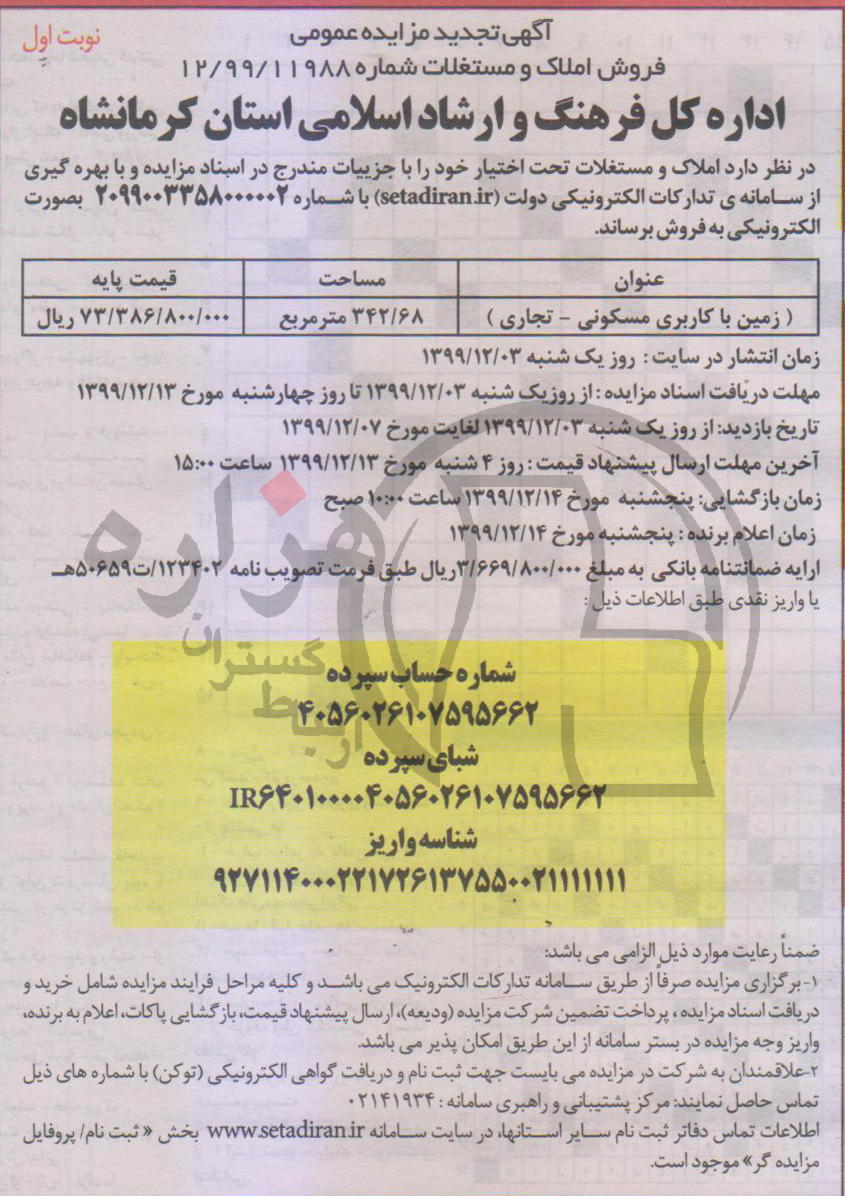 نوبت اول
آگهی تجدید مزایده عمومی
فروش املاک و مستغلات شماره ۱۲/۹۹/۱۱۹۸۸
اداره کل فرهنگ و ارشاد اسلامی استان کرمانشاه
در نظر دارد املاک و مستغلات تحت اختیار خود را با جزییات مندرج در اسناد مزایده و با بهره گیری
از سـامانه ی تدارکات الکترونیکی دولت (setadiran.ir) با شـماره ۲۰۹۹۰۰۳۳۵۸۰۰۰۰۰۲ بصورت
الکترونیکی به فروش برساند.
عنوان مساحت قیمت پایه
( زمین با کاربری مسکونی - تجاری ) ۳۴۲/۶۸ مترمربع ۷۳/۳۸۶/۸۰۰/۰۰۰ ریال
زمان انتشار در سایت : روز یک شنبه ۱۳۹۹/۱۲/۰۳
مهلت دریافت اسناد مزایده : از روزیک شنبه ۱۳۹۹/۱۲/۰۳ تا روز چهارشنبه مورخ ۱۳۹۹/۱۲/۱۳
تاریخ بازدید: از روز یک شنبه ۱۳۹۹/۱۲/۰۳ لغایت مورخ ۱۳۹۹/۱۲/۰۷
آخرین مهلت ارسال پیشنهاد قیمت : روز ۴ شنبه مورخ ۱۳۹۹/۱۲/۱۳ ساعت ۱۵:۰۰
زمان بازگشایی: پنجشنبه مورخ ۱۳۹۹/۱۲/۱۴ ساعت ۱۰:۰۰ صبح
زمان اعلام برنده : پنجشنبه مورخ ۱۳۹۹/۱۲/۱۴
ارایه ضمانتنامه بانکی به مبلغ ۳/۶۶۹/۸۰۰/۰۰۰ریال طبق فرمت تصویب نامه ۱۲۳۴۰۲/ت۵۰۶۵۹هـ
یا واریز نقدی طبق اطلاعات ذیل :
شماره حساب سپرده
۴۰۵۶۰۲۶۱۰۷۵۹۵۶۶۲
شبای سپرده
IR۶۴۰۱۰۰۰۰۴۰۵۶۰۲۶۱۰۷۵۹۵۶۶۲
شناسه واریز
۹۲۷۱۱۴۰۰۰۲۲۱۷۲۶۱۳۷۵۵۰۰۲۱۱۱۱۱۱۱
هزاره
گستران
ارتباط
ضمناً رعایت موارد ذیل الزامی می باشد:
۱-برگزاری مزایده صرفاً از طریق سـامانه تدارکات الکترونیک می باشـد و کلیه مراحل فرایند مزایده شامل خرید و
دریافت اسناد مزایده ، پرداخت تضمین شرکت مزایده (ودیعه)، ارسال پیشنهاد قیمت، بازگشایی پاکات، اعلام به برنده،
واریز وجه مزایده در بستر سامانه از این طریق امکان پذیر می باشد.
۲-علاقمندان به شرکت در مزایده می بایست جهت ثبت نام و دریافت گواهی الکترونیکی (توکن) با شماره های ذیل
تماس حاصل نمایند: مرکز پشتیبانی و راهبری سامانه : ۰۲۱۴۱۹۳۴
اطلاعات تماس دفاتر ثبت نام سـایر اسـتانها، در سایت سـامانه www.setadiran.ir بخش « ثبت نام/ پروفایل
مزایده گر» موجود است.